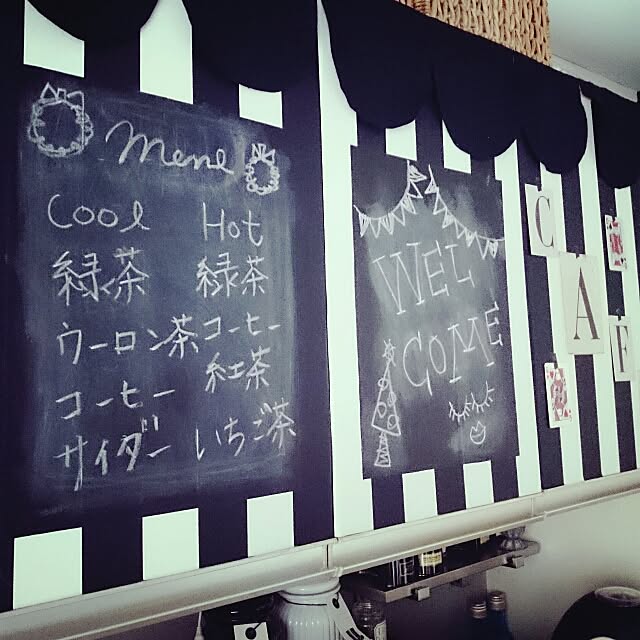 Menu
Cool
緑茶
ウーロン茶
コーヒー
サイダー
Hot
緑茶
コーヒー
紅茶
いちご茶
WEL
COME
C
A
F